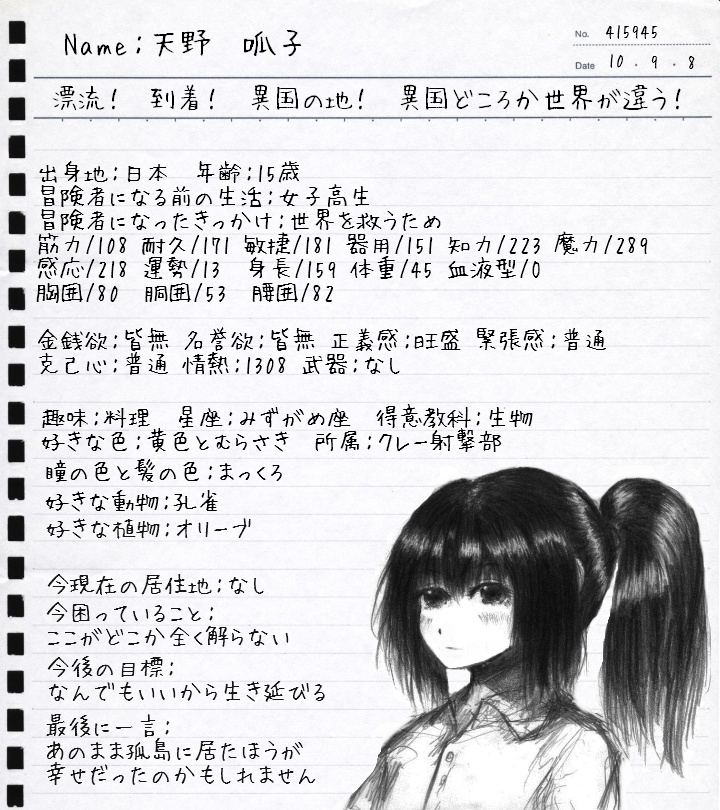 Name;天野 呱子
No. 415945
Date 10・9・8
漂流! 到着! 異国の地! 異国どころか世界が違う!
出身地;日本 年齢;15歳
冒険者になる前の生活;女子高生
冒険者になったきっかけ;世界を救うため
筋力/108 耐久/171 敏捷/181 器用/151 知力/223 魔力/289
感応/218 運勢/13 身長/159 体重/45 血液型/O
胸囲/80 胴囲/53 腰囲/82
金銭欲;皆無 名誉欲;皆無 正義感;旺盛 緊張感;普通
克己心;普通 情熱;1308 武器;なし
趣味;料理 星座;みずがめ座 得意教科;生物
好きな色;黄色とむらさき 所属;クレー射撃部
瞳の色と髪の色;まっくろ
好きな動物;孔雀
好きな植物;オリーブ
今現在の居住地;なし
今困っていること;
ここがどこか全く解らない
今後の目標;
なんでもいいから生き延びる
最後に一言;
あのまま孤島に居たほうが
幸せだったのかもしれません